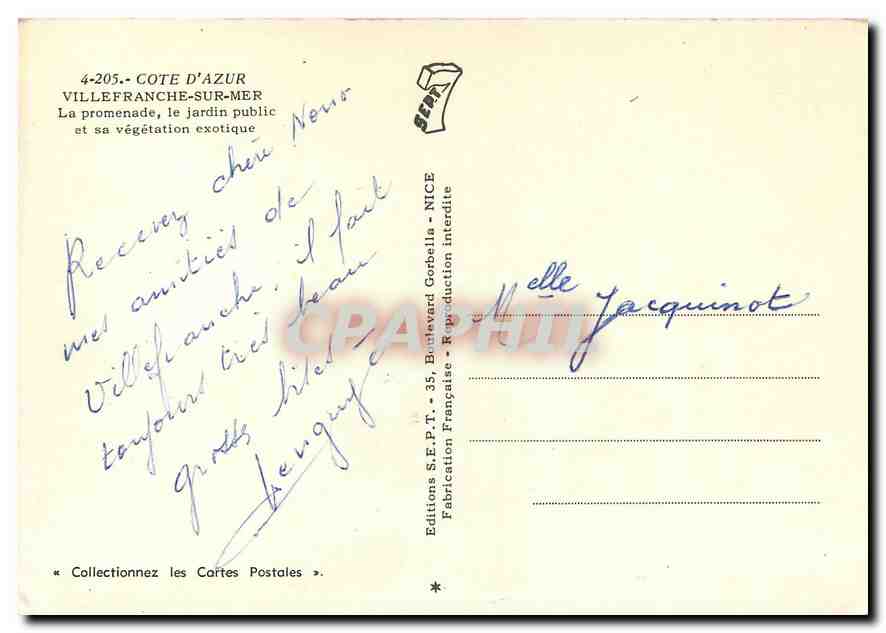 4-205.- COTE D'AZUR
VILLEFRANCHE-SUR-MER
La promenade, le jardin public
et sa végétation exotique
Recevez chère Nono
mes amitiés de
Villefranche, il fait
toujours très beau
grosses bises
SEPT 7
Editions S.E.P.T. - 35, Boulevard Gorbella - NICE
Fabrication Française - Reproduction interdite
Melle Jacquinot
CPAPHIL
« Collectionnez les Cartes Postales ».
*